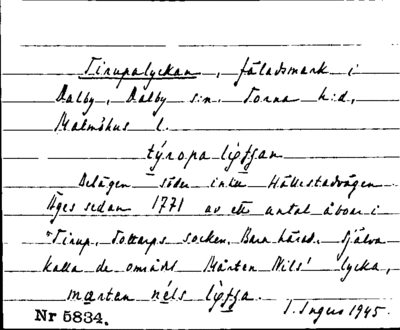 Tirupalyckan, fäladsmark i
Dalby, Dalby s:n. Torna h:d,
Malmöhus l.
týropa
Belägen söder intill Hällestadvägen
Äges sedan 1771 av ett antal åboar i
Tirup, Tottarps socken, Bara härad. Själva
kalla de området Mårten Nils' lycka,
marten néls
I. Ingers 1945.
Nr 5834.